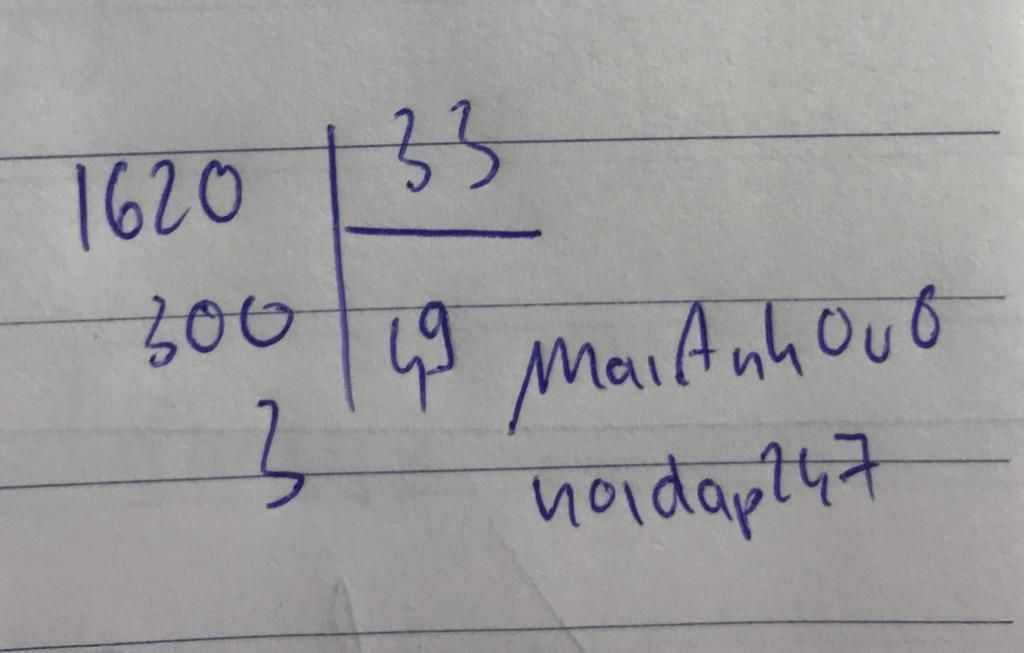 1620 33
300 49 MaiAnh0v0
3 hoidap247